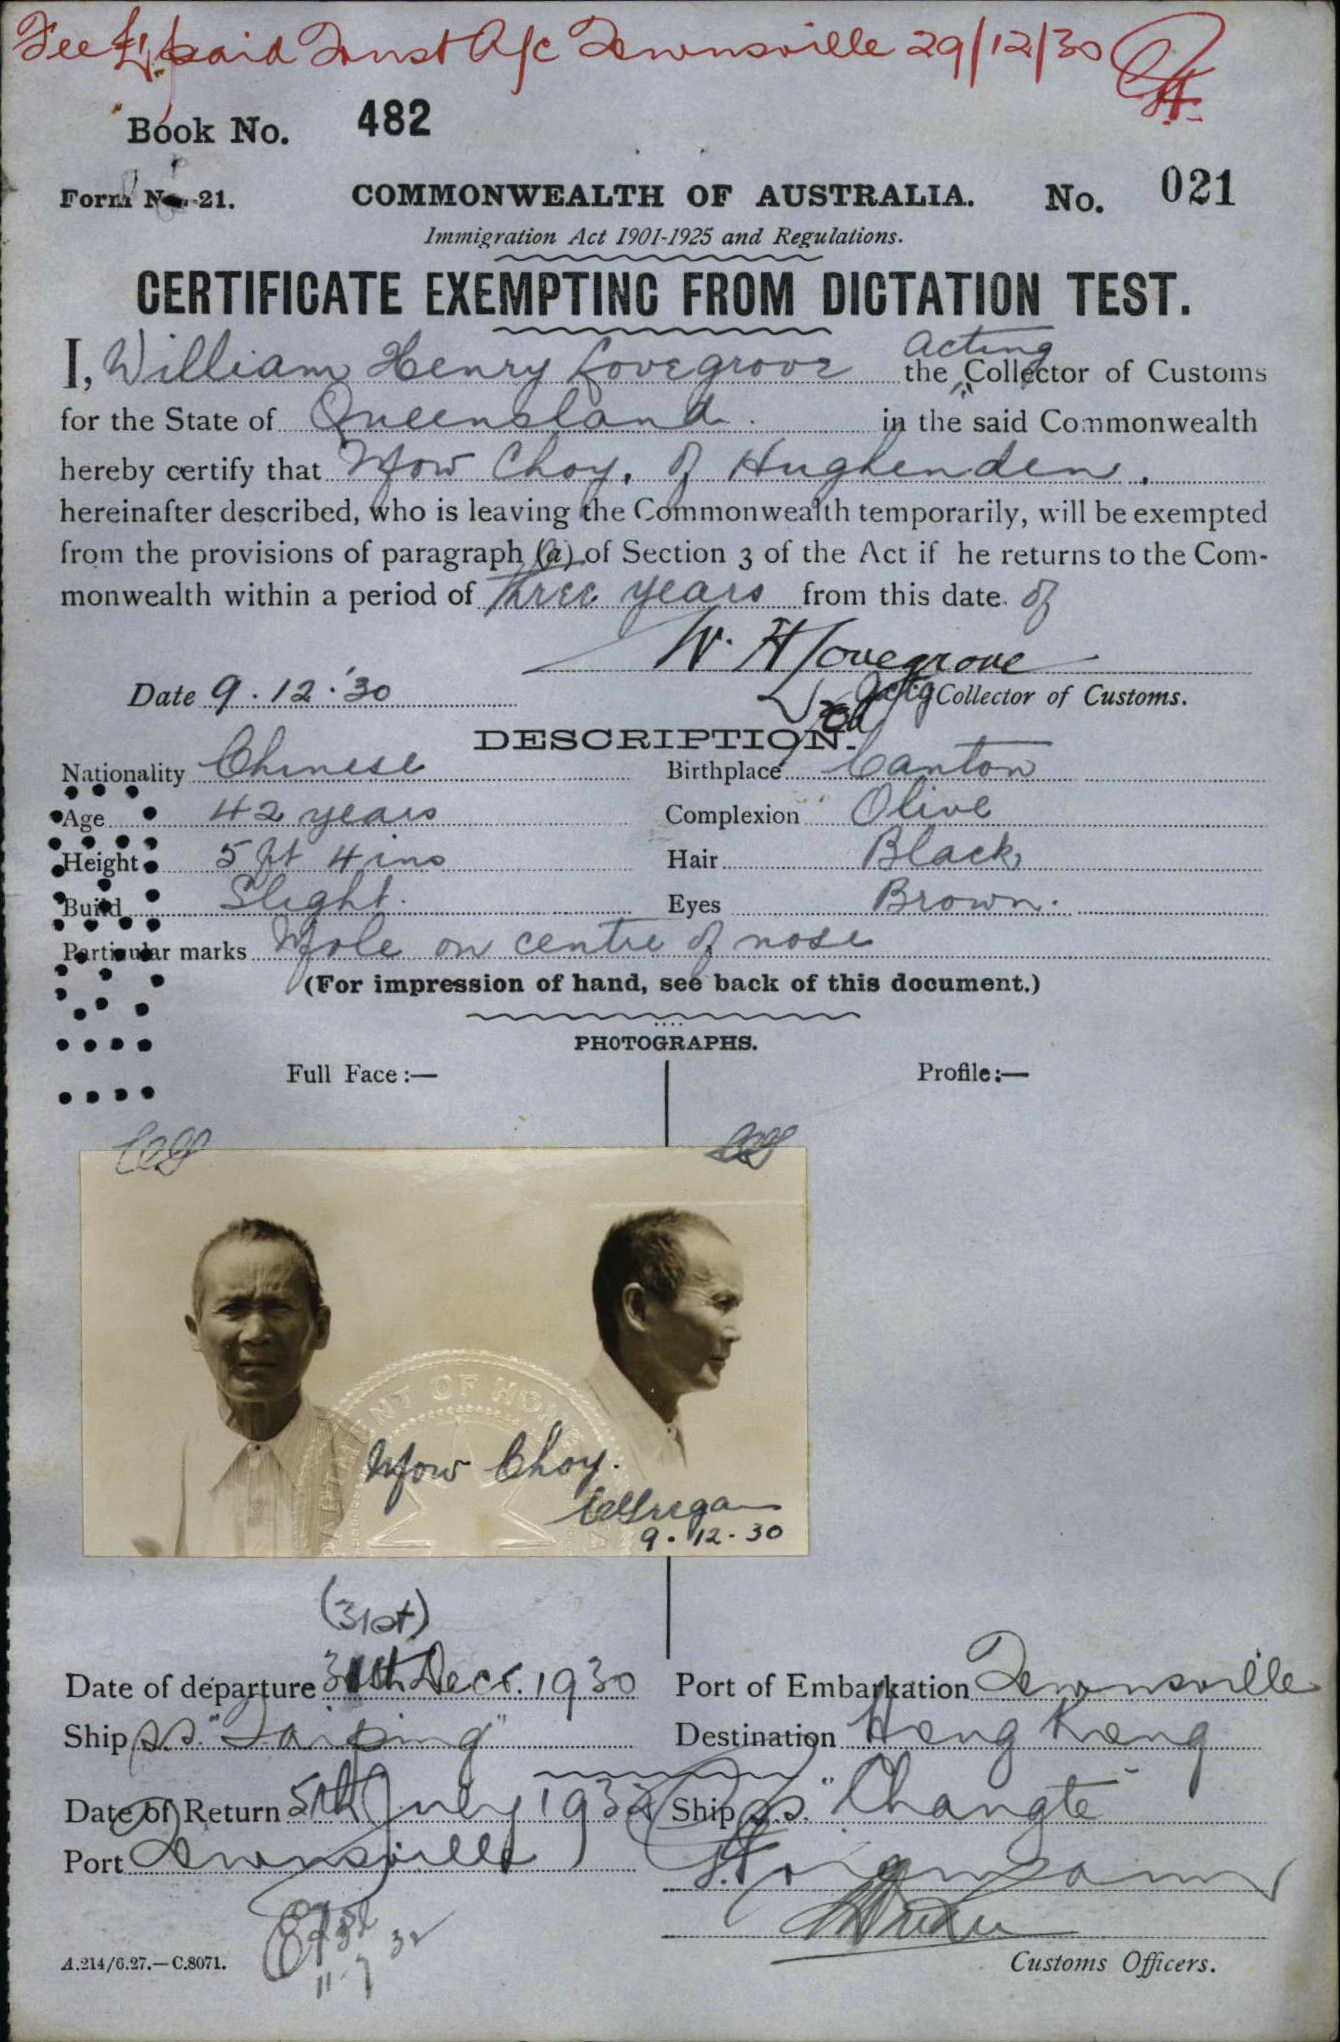 Fee £1 paid Trust A/c Townsville 29/12/30
Book No. 482
Form No. 21. COMMONWEALTH OF AUSTRALIA. No. 021
Immigration Act 1901-1925 and Regulations.
CERTIFICATE EXEMPTING FROM DICTATION TEST.
I, William Henry Lovegrove the Acting Collector of Customs
for the State of Queensland. in the said Commonwealth
hereby certify that Mow Choy, of Hughenden,
hereinafter described, who is leaving the Commonwealth temporarily, will be exempted
from the provisions of paragraph (a) of Section 3 of the Act if he returns to the Com-
monwealth within a period of three years from this date of
W. H Lovegrove
Date 9.12.'30 Actg Collector of Customs.
DESCRIPTION.
Nationality Chinese Birthplace Canton
Age 42 years Complexion Olive
Height 5 ft 4 ins Hair Black
Build Slight. Eyes Brown.
Particular marks Mole on centre of nose
(For impression of hand, see back of this document.)
PHOTOGRAPHS.
Full Face:— Profile:—
Mow Choy.
9.12.30
(31st)
Date of departure 31st Decr. 1930 Port of Embarkation Townsville
Ship s.s. "Taiping" Destination Hong Kong
Date of Return 5th July 1932 Ship s.s. "Changte"
Port Townsville
11 7 32
A.214/6.27.—C.8071. Customs Officers.